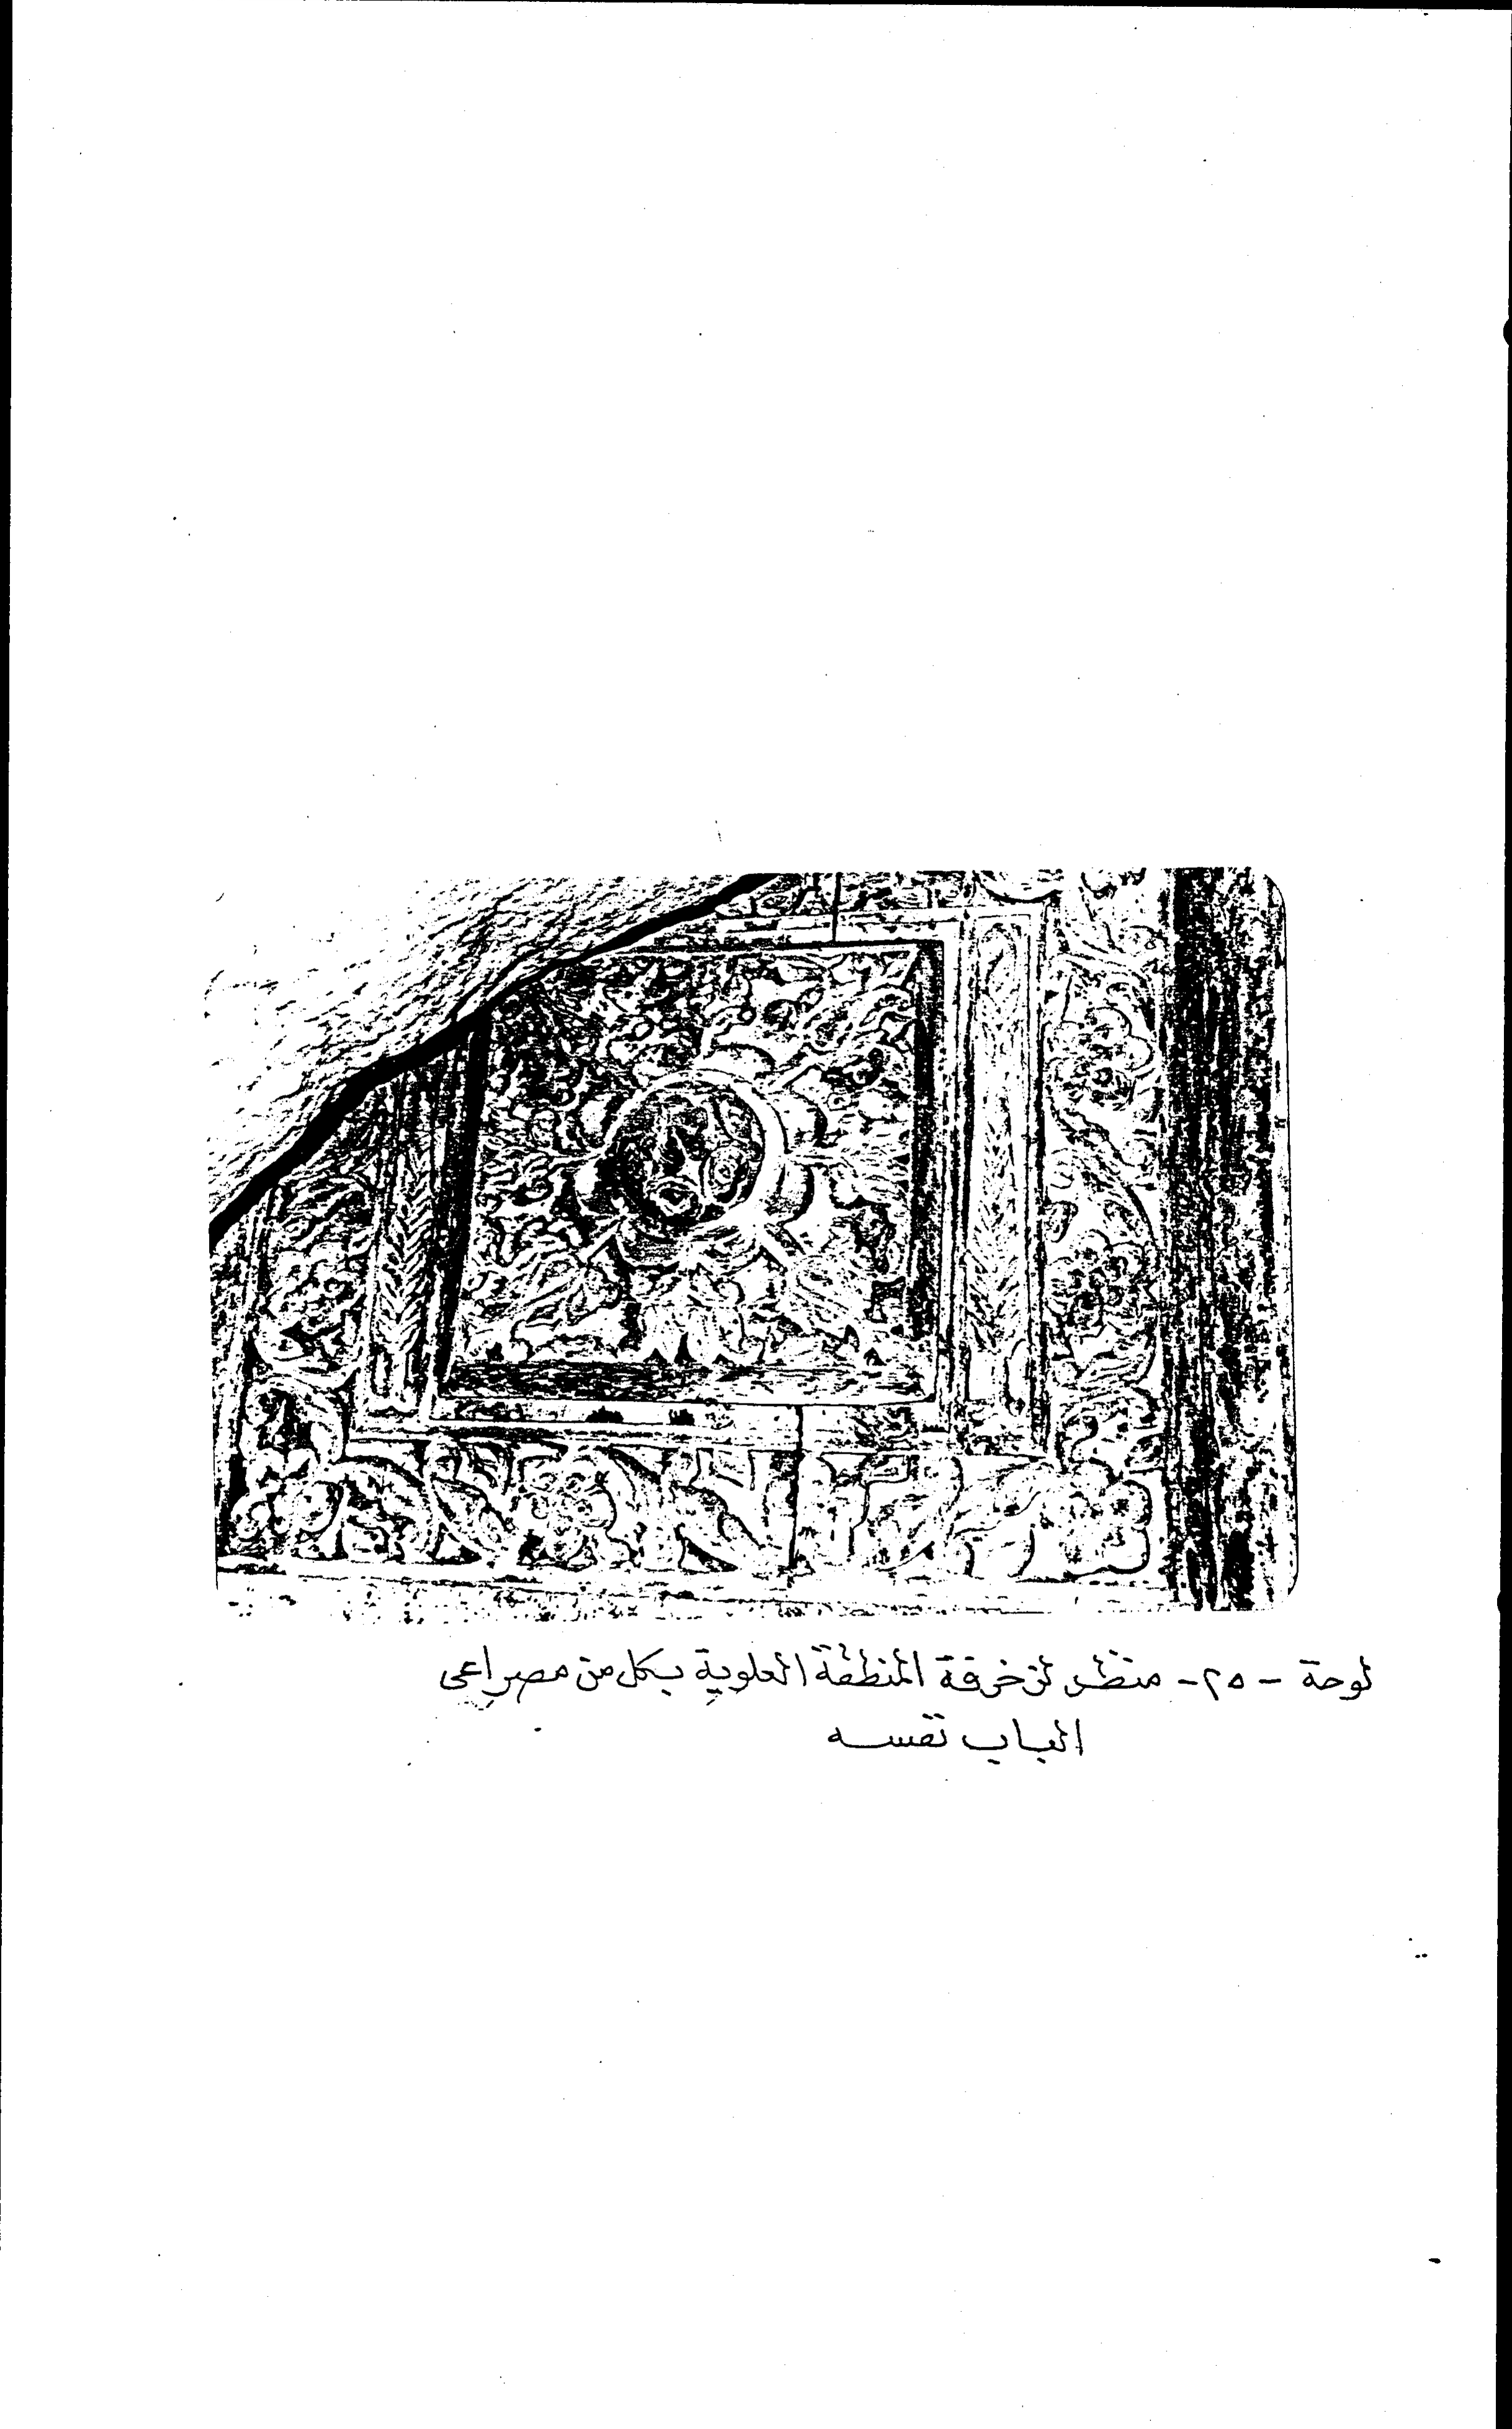 لوحة - ٢٥ - منظر لزخرفة المنطقة العلوية بكل من مصراعى
الباب نفسه